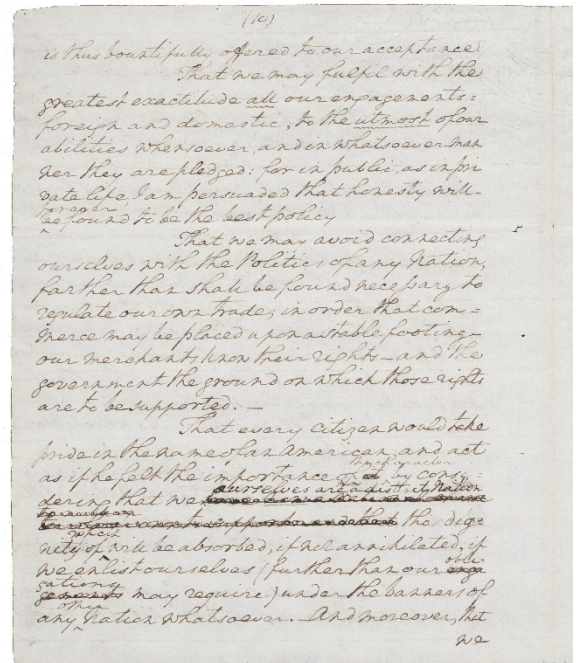 (10)
is thus bountifully offered to our acceptance.
That we may fulfil with the
greatest exactitude all our engagements:
foreign and domestic, to the utmost of our
abilities whensoever, and in whatsoever man
ner they are pledged: for in public, as in pri
vate life, I am persuaded that honesty will
forever
be found to be the best policy
That we may avoid connecting
ourselves with the Politics of any Nation,
farther than shall be found necessary to
regulate our own trade; in order that com=
merce may be placed upon a stable footing—
our merchants know their rights—and the
government the ground on which those rights
are to be supported.—
That every citizen would take
pride in the name of an American, and act
as if he felt the importance of the character
by consi=
dering that we ourselves are a distinct Nation
the dig=
nity of which
will be absorbed, if not annihilated, if
we enlist ourselves (further than our obli
gations
may require) under the banners of
other
any nation whatsoever. And moreover, that
we